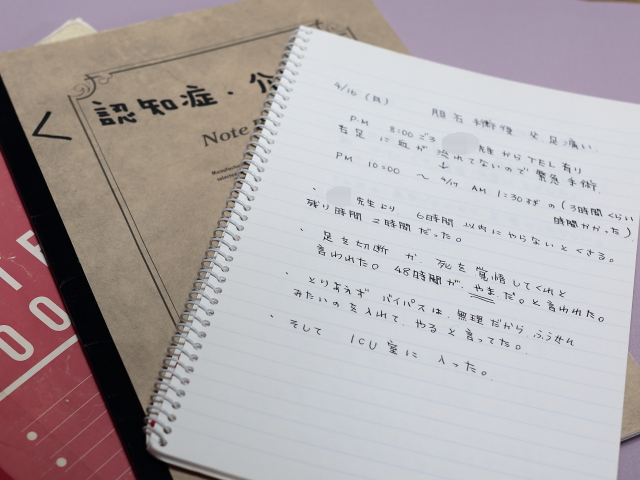 認知症・介
Note B
4/16 (月) 胆石 手術後 左足痛い.
PM 8:00ごろ 先生からTEL有り
右足に血が流れてないので緊急手術
↓
PM 10:00 〜 4/17 AM 1:30まで(3時間くらい
時間かかった)
・ 先生より 6時間以内にやらないとくさる。
残り時間2時間だった。
・ 足を切断か、死を覚悟してくれと
言われた。48時間が、やまだ。と言われた。
・ とりあえずバイパスは、無理だから、ふうせん
みたいのを入れて、やると言ってた。
・ そして ICU室に入った。